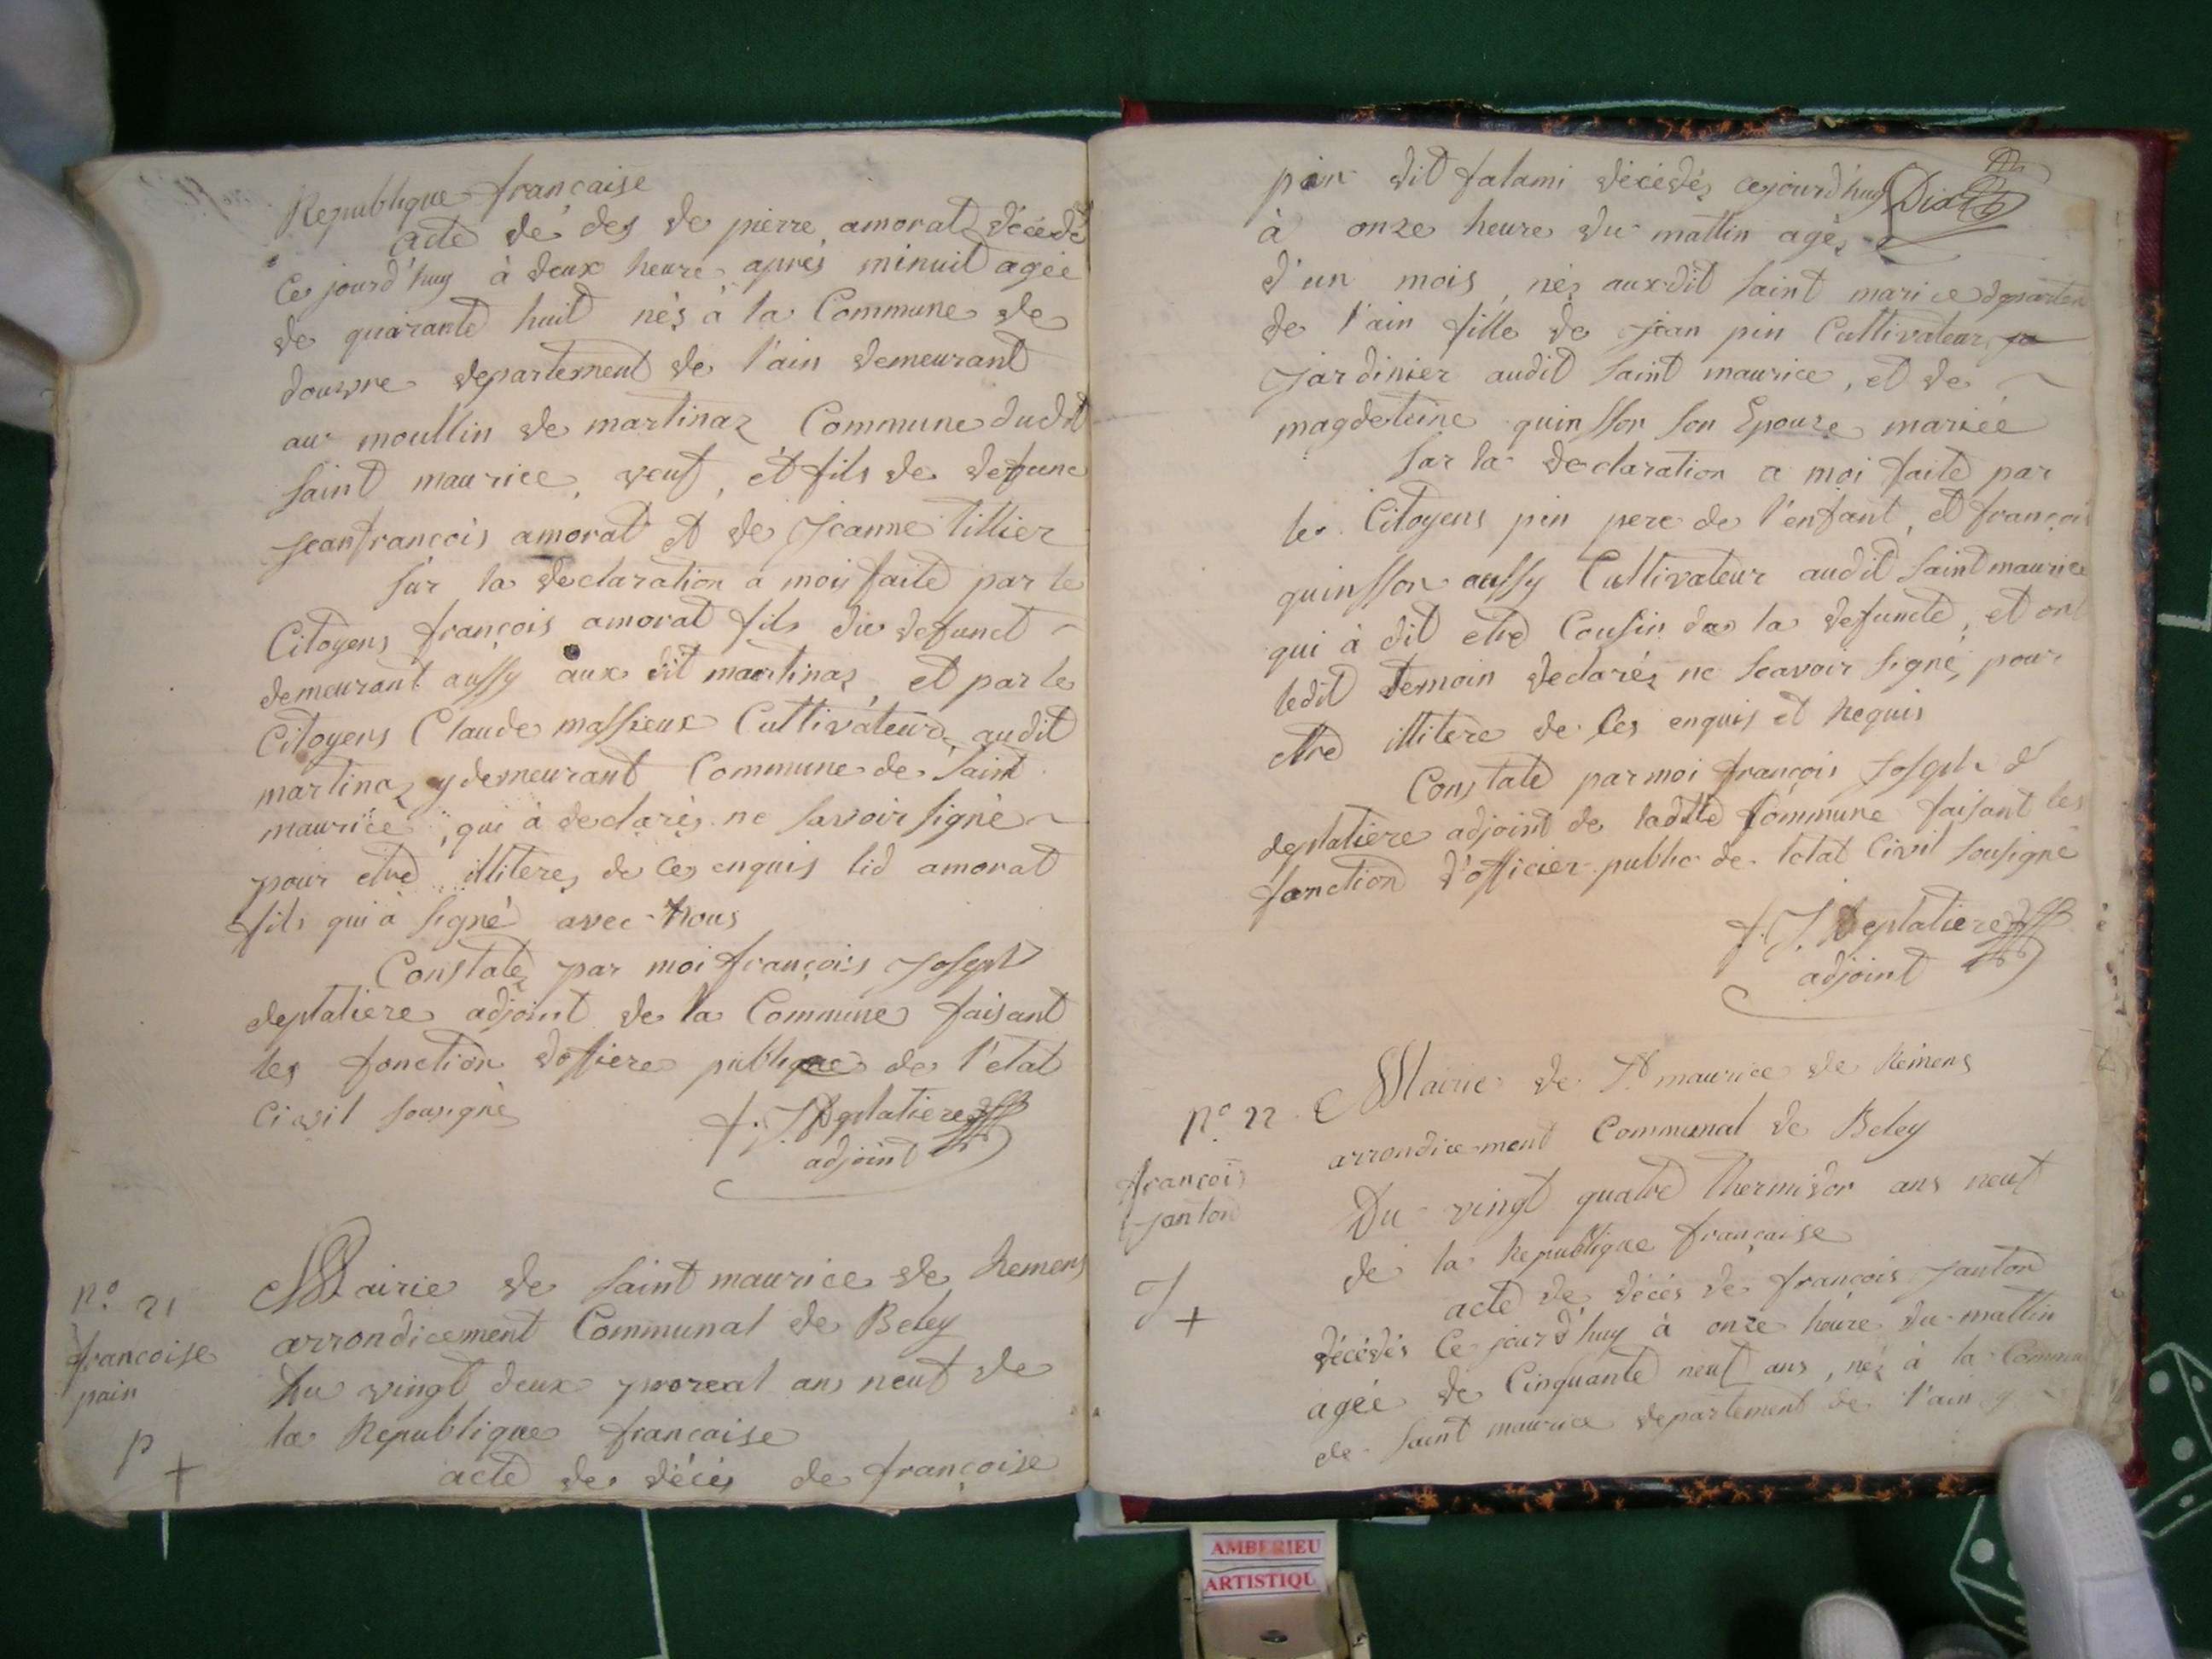 Republique française
acte de des de pierre amorat décédé
Ce jourd'huy à deux heure après minuit agée
de quarante huit nés à la Commune de
douvre departement de l'ain demeurant
au moullin de martinaz Commune dudit
saint maurice, veuf, et fils de defunc
jeanfrançois amorat et de Jeanne tillier
sur la declaration a moi faite par le
Citoyens françois amorat fils du defunct
demeurant aussy aux dit martinaz, et par le
Citoyens Claude massieux Cultivateur audit
martinaz y demeurant Commune de saint
maurice, qui à declarés ne savoir signé
pour etre illitere, de ces enquis lid amorat
fils qui à signé avec nous
Constatez par moi françois Joseph
deplatiere adjoint de la Commune faisant
les fonction doffiere publique de l'etat
Civil sousigné
f. J. Deplatiere
adjoint
n.° 21
francoise
pain
p
+
Mairie de saint maurice de Remens
arrondicement Communal de Beley
du vingt deux prereal ans neuf de
la Republique francaise
acte de décés de françoise
pin dit falami décédés cejourd'huy
à onze heure du mattin agés
d'un mois, nés auxdit saint marice departem
de l'ain fille de jean pin Cultivateur
jardinier audit saint maurice, et de
magdeleine quinsson son Epouse mariée
sur la declaration a moi faite par
le Citoyens pin pere de l'enfant, et françois
quinsson aussy Cultivateur audit saint maurice
qui à dit etre Cousin de la defuncte, et ont
ledit temoin declarés ne scavoir signé, pour
etre illitere de ces enquis et Requis
Constate par moi françois Joseph d
deplatiere adjoint de ladite Commune faisant les
fonction d'officier public de letat Civil sousigné
f. J. Deplatiere
adjoint
n.° 22
françois
janton
J
+
Mairie de St maurice de Remens
arrondicement Communal de Beley
Du vingt quatre thermidor ans neuf
de la Republique française
acte de décés de françois janton
décédés Ce jourd'huy à onze heure du mattin
agée de Cinquante neuf ans, nés à la Commu
de saint maurice departement de l'ain y
AMBERIEU
ARTISTIQU